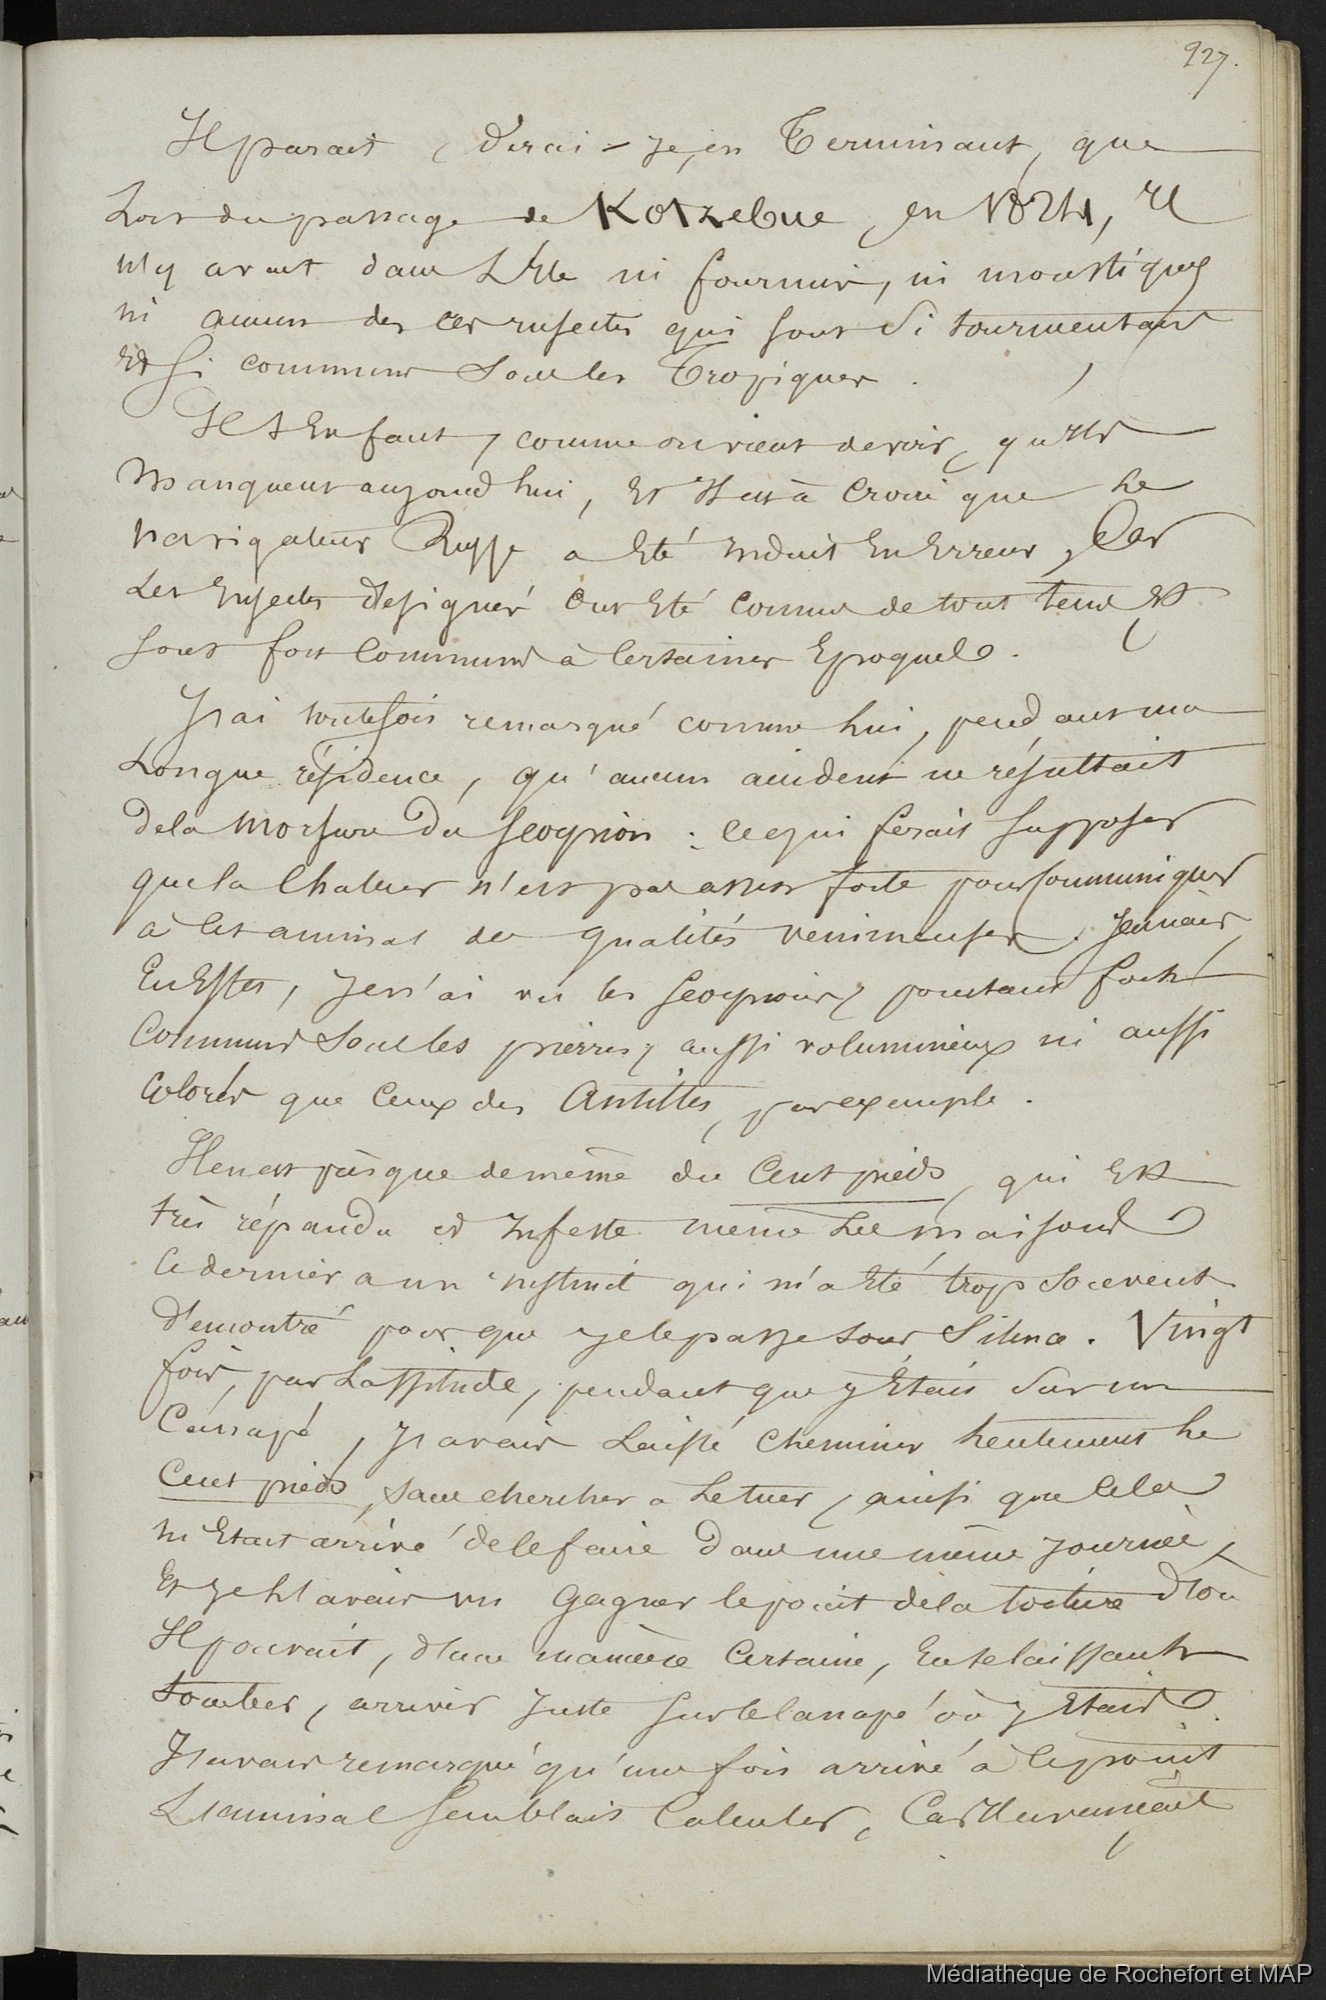 927.
Il parait, dirai-je, en Terminant, que
Lors du passage de Kotzebue, en 1824, Il
n'y avait dans L'Ile ni fourmis, ni moustiques
ni aucun des ces insectes qui sont Si tourmentans
Et Si communs Sous les Tropiques.
Il s'En faut, comme on vient de voir, qu'Ils
Manquent aujourd'hui, Et Il est à Croire que Le
Navigateur Russe a Eté Induit En Erreur, Car
Les Insectes désignés Ont Eté Connus de tout tems Et
Sont fort Communs à Certaines Epoques.
J'ai toutefois remarqué comme lui, pendant ma
Longue résidence, qu'aucun accident ne résultait
De la Morsure Du Scorpion : Ce qui ferait Supposer
que la Chaleur n'est pas assez forte pour Communiquer
à Cet animal des qualités venimeuses. Jamais,
En Effet, Je n'ai vu les Scorpions, pourtant forts
Communs Sous les pierres, aussi volumineux ni aussi
Colorés que Ceux des Antilles, par exemple.
Il en est presque de même du Cent pieds, qui Est
très répandu et Infeste même Les maisons
Ce dernier a un instinct qui m'a Eté trop Souvent
démontré pour que je le passe sous Silence. Vingt
fois, par Lassitude, pendant que j'Étais Sur un
Canapé, J'avais Laissé Cheminer lentement Le
Cent pieds, sans chercher a Le tuer, ainsi que Cela
m'Etait arrivé de le faire Dans une même journée,
Et je l'avais vu Gagner le point de la toiture d'où
Il pouvait, d'une manière Certaine, En se laissant
tomber, arriver Juste Sur le Canapé où j'Etais.
J'avais remarqué qu'une fois arrivé à Ce point
L'animal Semblait Calculer, Car Il revenait
Médiathèque de Rochefort et MAP